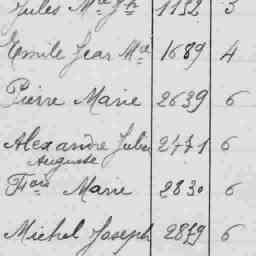 Jules Mie Jh 1132 3
Emile Jean Mie 1689 4
Pierre Marie 2639 6
Alexandre Jules 2771 6
Auguste
Fois Marie 2830 6
Michel Joseph 2879 6